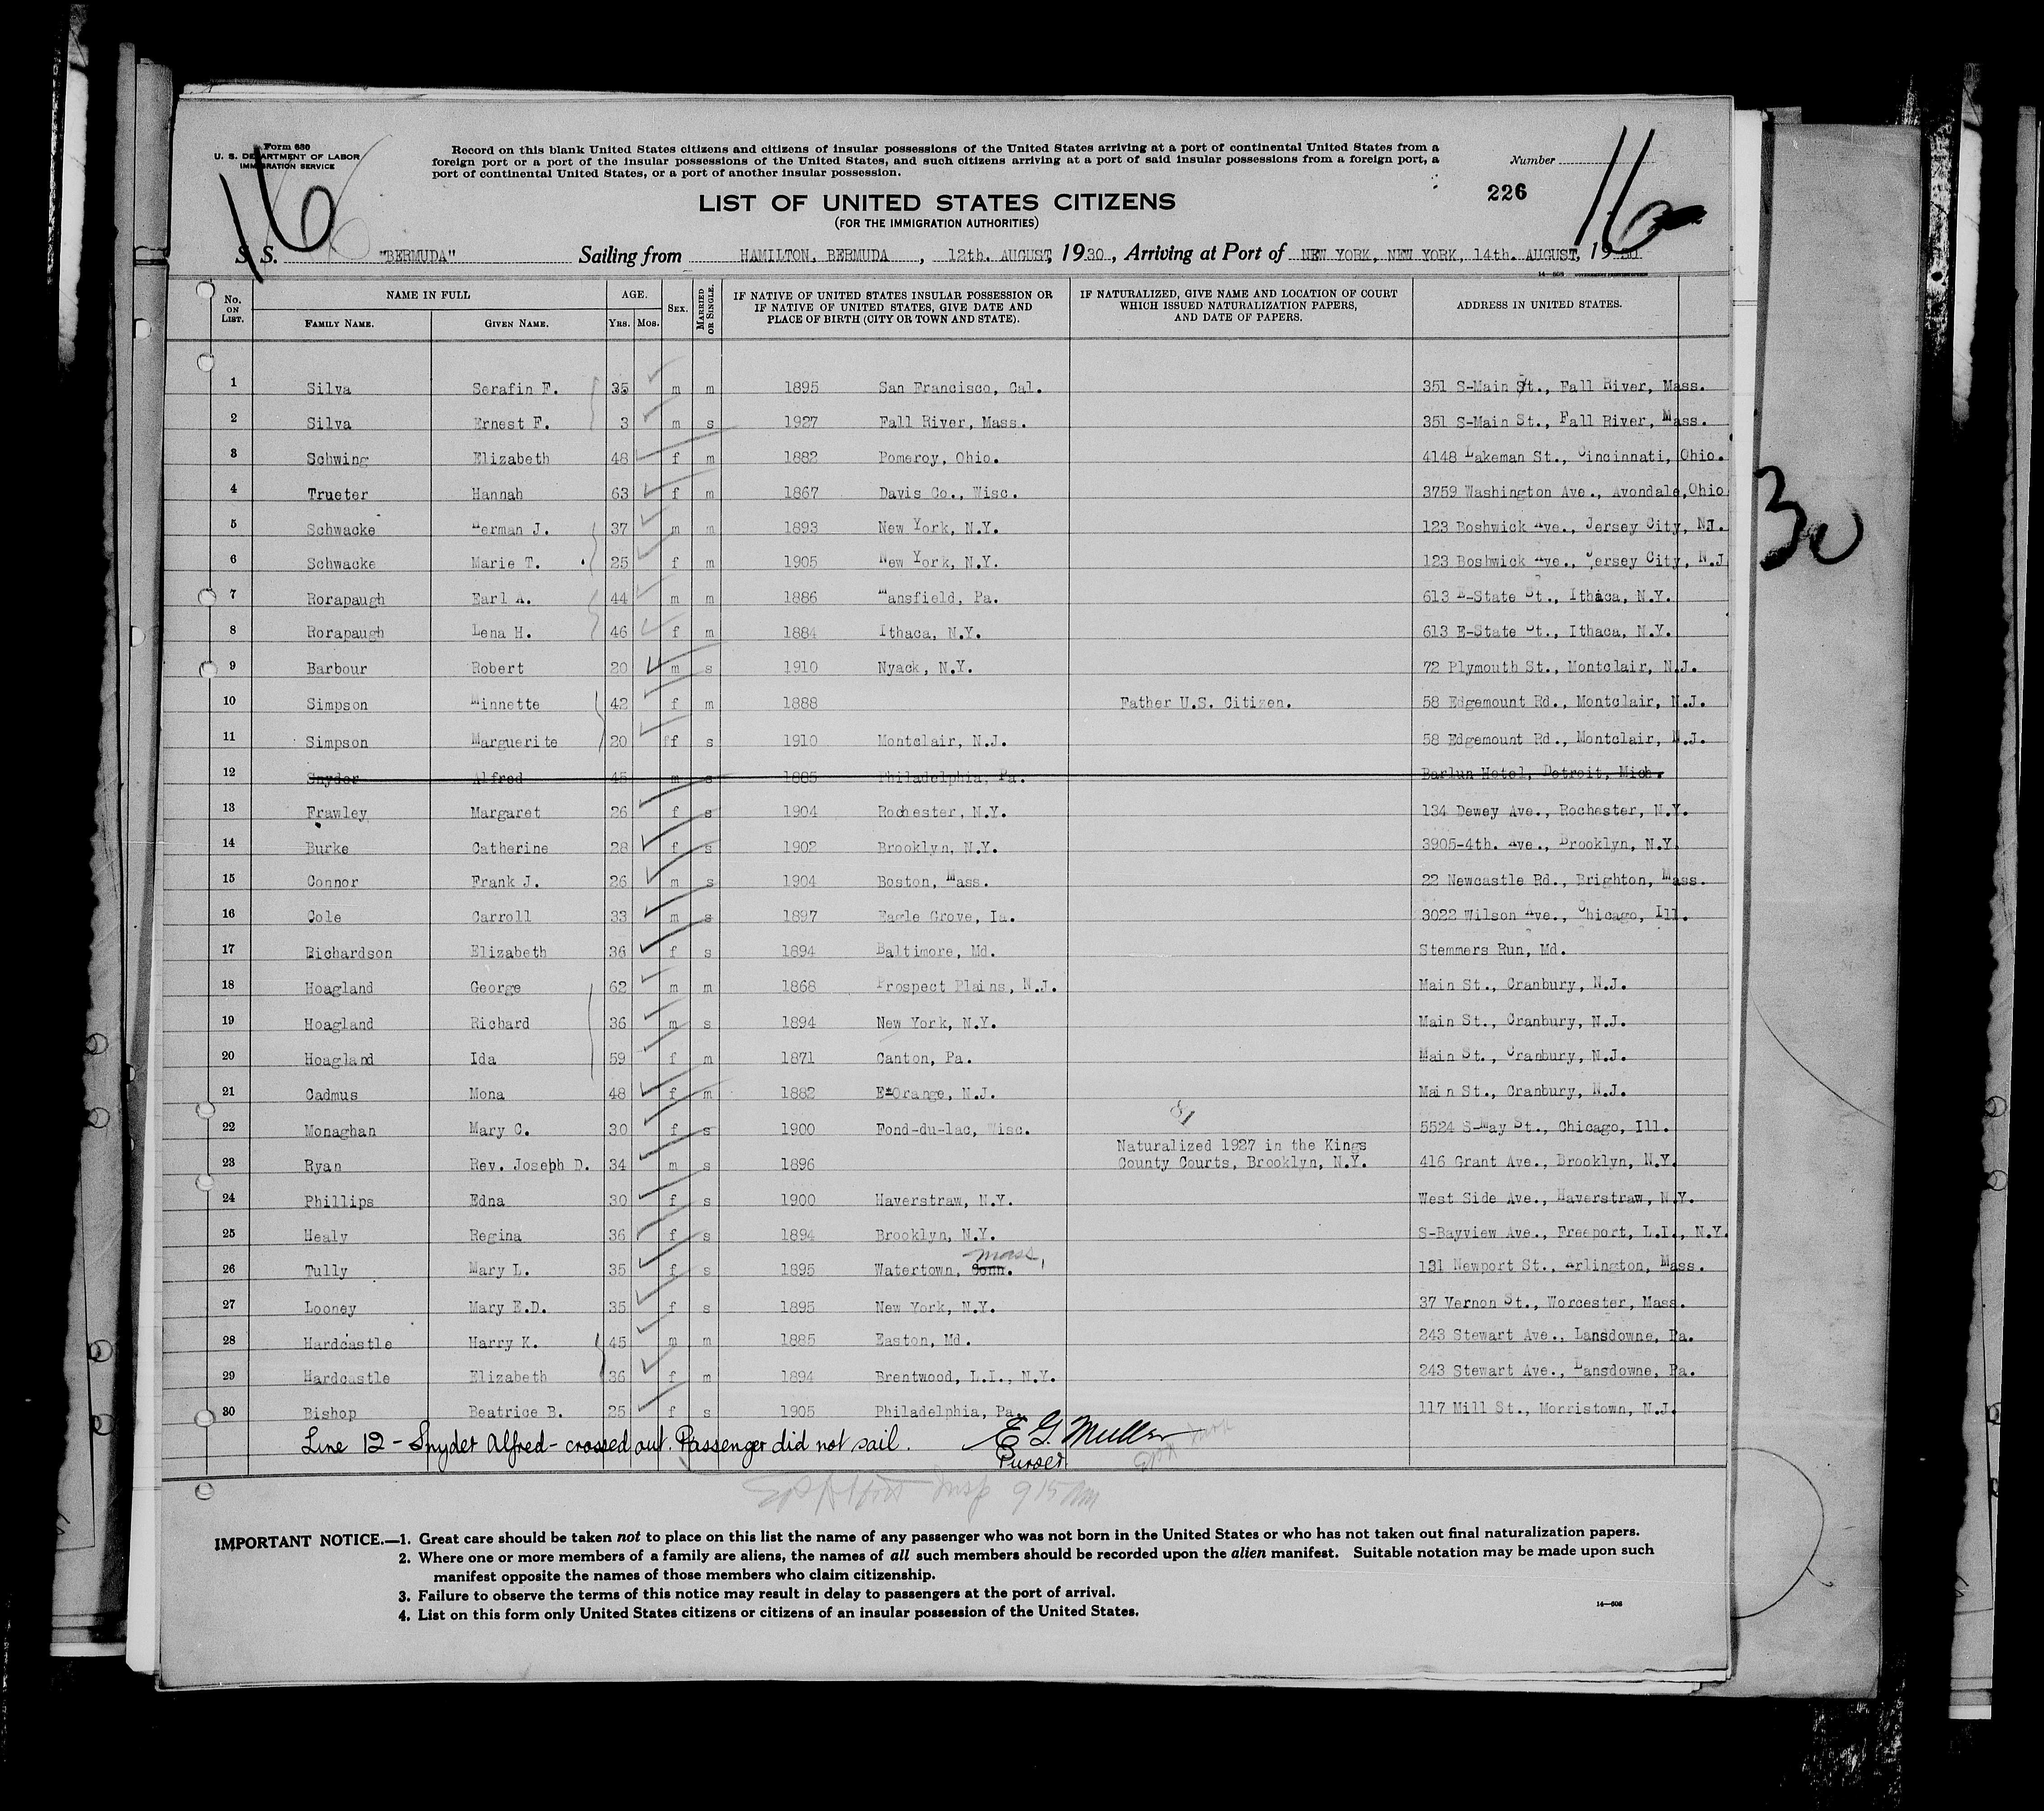 Form 630
U. S. DEPARTMENT OF LABOR
IMMIGRATION SERVICE
16
Record on this blank United States citizens and citizens of insular possessions of the United States arriving at a port of continental United States from a
foreign port or a port of the insular possessions of the United States, and such citizens arriving at a port of said insular possessions from a foreign port, a
port of continental United States, or a port of another insular possession.
Number
226
16
LIST OF UNITED STATES CITIZENS
(FOR THE IMMIGRATION AUTHORITIES)
S. S. "BERMUDA" Sailing from HAMILTON, BERMUDA , 12th. AUGUST, 1930, Arriving at Port of NEW YORK, NEW YORK, 14th. AUGUST, 1930
No. ON LIST. NAME IN FULL FAMILY NAME. GIVEN NAME. AGE. YRS. MOS. SEX. MARRIED OR SINGLE. IF NATIVE OF UNITED STATES INSULAR POSSESSION OR IF NATIVE OF UNITED STATES, GIVE DATE AND PLACE OF BIRTH (CITY OR TOWN AND STATE). IF NATURALIZED, GIVE NAME AND LOCATION OF COURT WHICH ISSUED NATURALIZATION PAPERS, AND DATE OF PAPERS. ADDRESS IN UNITED STATES.
1 Silva Serafin F. 35 m m 1895 San Francisco, Cal. 351 S-Main St., Fall River, Mass.
2 Silva Ernest F. 3 m s 1927 Fall River, Mass. 351 S-Main St., Fall River, Mass.
3 Schwing Elizabeth 48 f m 1882 Pomeroy, Ohio. 4148 Lakeman St., Cincinnati, Ohio.
4 Trueter Hannah 63 f m 1867 Davis Co., Wisc. 3759 Washington Ave., Avondale, Ohio
5 Schwacke Herman J. 37 m m 1893 New York, N.Y. 123 Boshwick Ave., Jersey City, NJ.
6 Schwacke Marie T. 25 f m 1905 New York, N.Y. 123 Boshwick Ave., Jersey City, N.J
7 Rorapaugh Earl A. 44 m m 1886 Mansfield, Pa. 613 E-State St., Ithaca, N.Y.
8 Rorapaugh Lena H. 46 f m 1884 Ithaca, N.Y. 613 E-State St., Ithaca, N.Y.
9 Barbour Robert 20 m s 1910 Nyack, N.Y. 72 Plymouth St., Montclair, N.J.
10 Simpson Minnette 42 f m 1888 Father U.S. Citizen. 58 Edgemount Rd., Montclair, N.J.
11 Simpson Marguerite 20 ff s 1910 Montclair, N.J. 58 Edgemount Rd., Montclair, N.J.
12 Snyder Alfred 45 m s 1885 Philadelphia, Pa. Barlun Hotel, Detroit, Mich.
13 Frawley Margaret 26 f s 1904 Rochester, N.Y. 134 Dewey Ave., Rochester, N.Y.
14 Burke Catherine 28 f s 1902 Brooklyn, N.Y. 3905-4th. Ave., Brooklyn, N.Y.
15 Connor Frank J. 26 m s 1904 Boston, Mass. 22 Newcastle Rd., Brighton, Mass.
16 Cole Carroll 33 m s 1897 Eagle Grove, Ia. 3022 Wilson Ave., Chicago, Ill.
17 Richardson Elizabeth 36 f s 1894 Baltimore, Md. Stemmers Run, Md.
18 Hoagland George 62 m m 1868 Prospect Plains, N.J. Main St., Cranbury, N.J.
19 Hoagland Richard 36 m s 1894 New York, N.Y. Main St., Cranbury, N.J.
20 Hoagland Ida 59 f m 1871 Canton, Pa. Main St., Cranbury, N.J.
21 Cadmus Mona 48 f m 1882 E*Orange, N.J. Main St., Cranbury, N.J.
22 Monaghan Mary C. 30 f s 1900 Fond-du-lac, Wisc. 5524 S-May St., Chicago, Ill.
23 Ryan Rev. Joseph D. 34 m s 1896 Naturalized 1927 in the Kings County Courts, Brooklyn, N.Y. 416 Grant Ave., Brooklyn, N.Y.
24 Phillips Edna 30 f s 1900 Haverstraw, N.Y. West Side Ave., Haverstraw, N.Y.
25 Healy Regina 36 f s 1894 Brooklyn, N.Y. S-Bayview Ave., Freeport, L.I., N.Y.
26 Tully Mary L. 35 f s 1895 Watertown, Conn. Mass, 131 Newport St., Arlington, Mass.
27 Looney Mary E.D. 35 f s 1895 New York, N.Y. 37 Vernon St., Worcester, Mass.
28 Hardcastle Harry K. 45 m m 1885 Easton, Md. 243 Stewart Ave., Lansdowne, Pa.
29 Hardcastle Elizabeth 36 f m 1894 Brentwood, L.I., N.Y. 243 Stewart Ave., Lansdowne, Pa.
30 Bishop Beatrice B. 25 f s 1905 Philadelphia, Pa. 117 Mill St., Morristown, N.J.
Line 12 - Snyder Alfred - crossed out. Passenger did not sail. E G. Muller
Purser
IMPORTANT NOTICE.—1. Great care should be taken not to place on this list the name of any passenger who was not born in the United States or who has not taken out final naturalization papers.
2. Where one or more members of a family are aliens, the names of all such members should be recorded upon the alien manifest. Suitable notation may be made upon such
manifest opposite the names of those members who claim citizenship.
3. Failure to observe the terms of this notice may result in delay to passengers at the port of arrival.
4. List on this form only United States citizens or citizens of an insular possession of the United States.
14—608
30